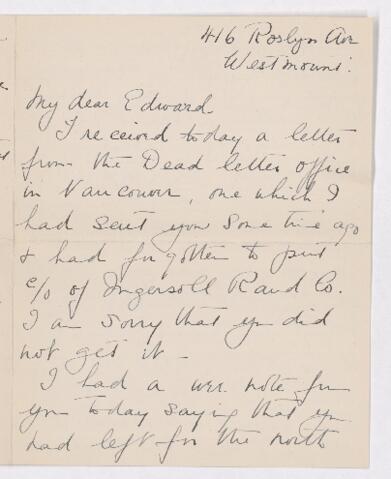 416 Roslyn Ave
Westmount.
My dear Edward
I received today a letter
from the Dead letter office
in Vancouver, one which I
had sent you some time ago
& had forgotten to put
c/o of Ingersoll Rand Co.
I am sorry that you did
not get it -
I had a wee note from
you today saying that you
had left for the north